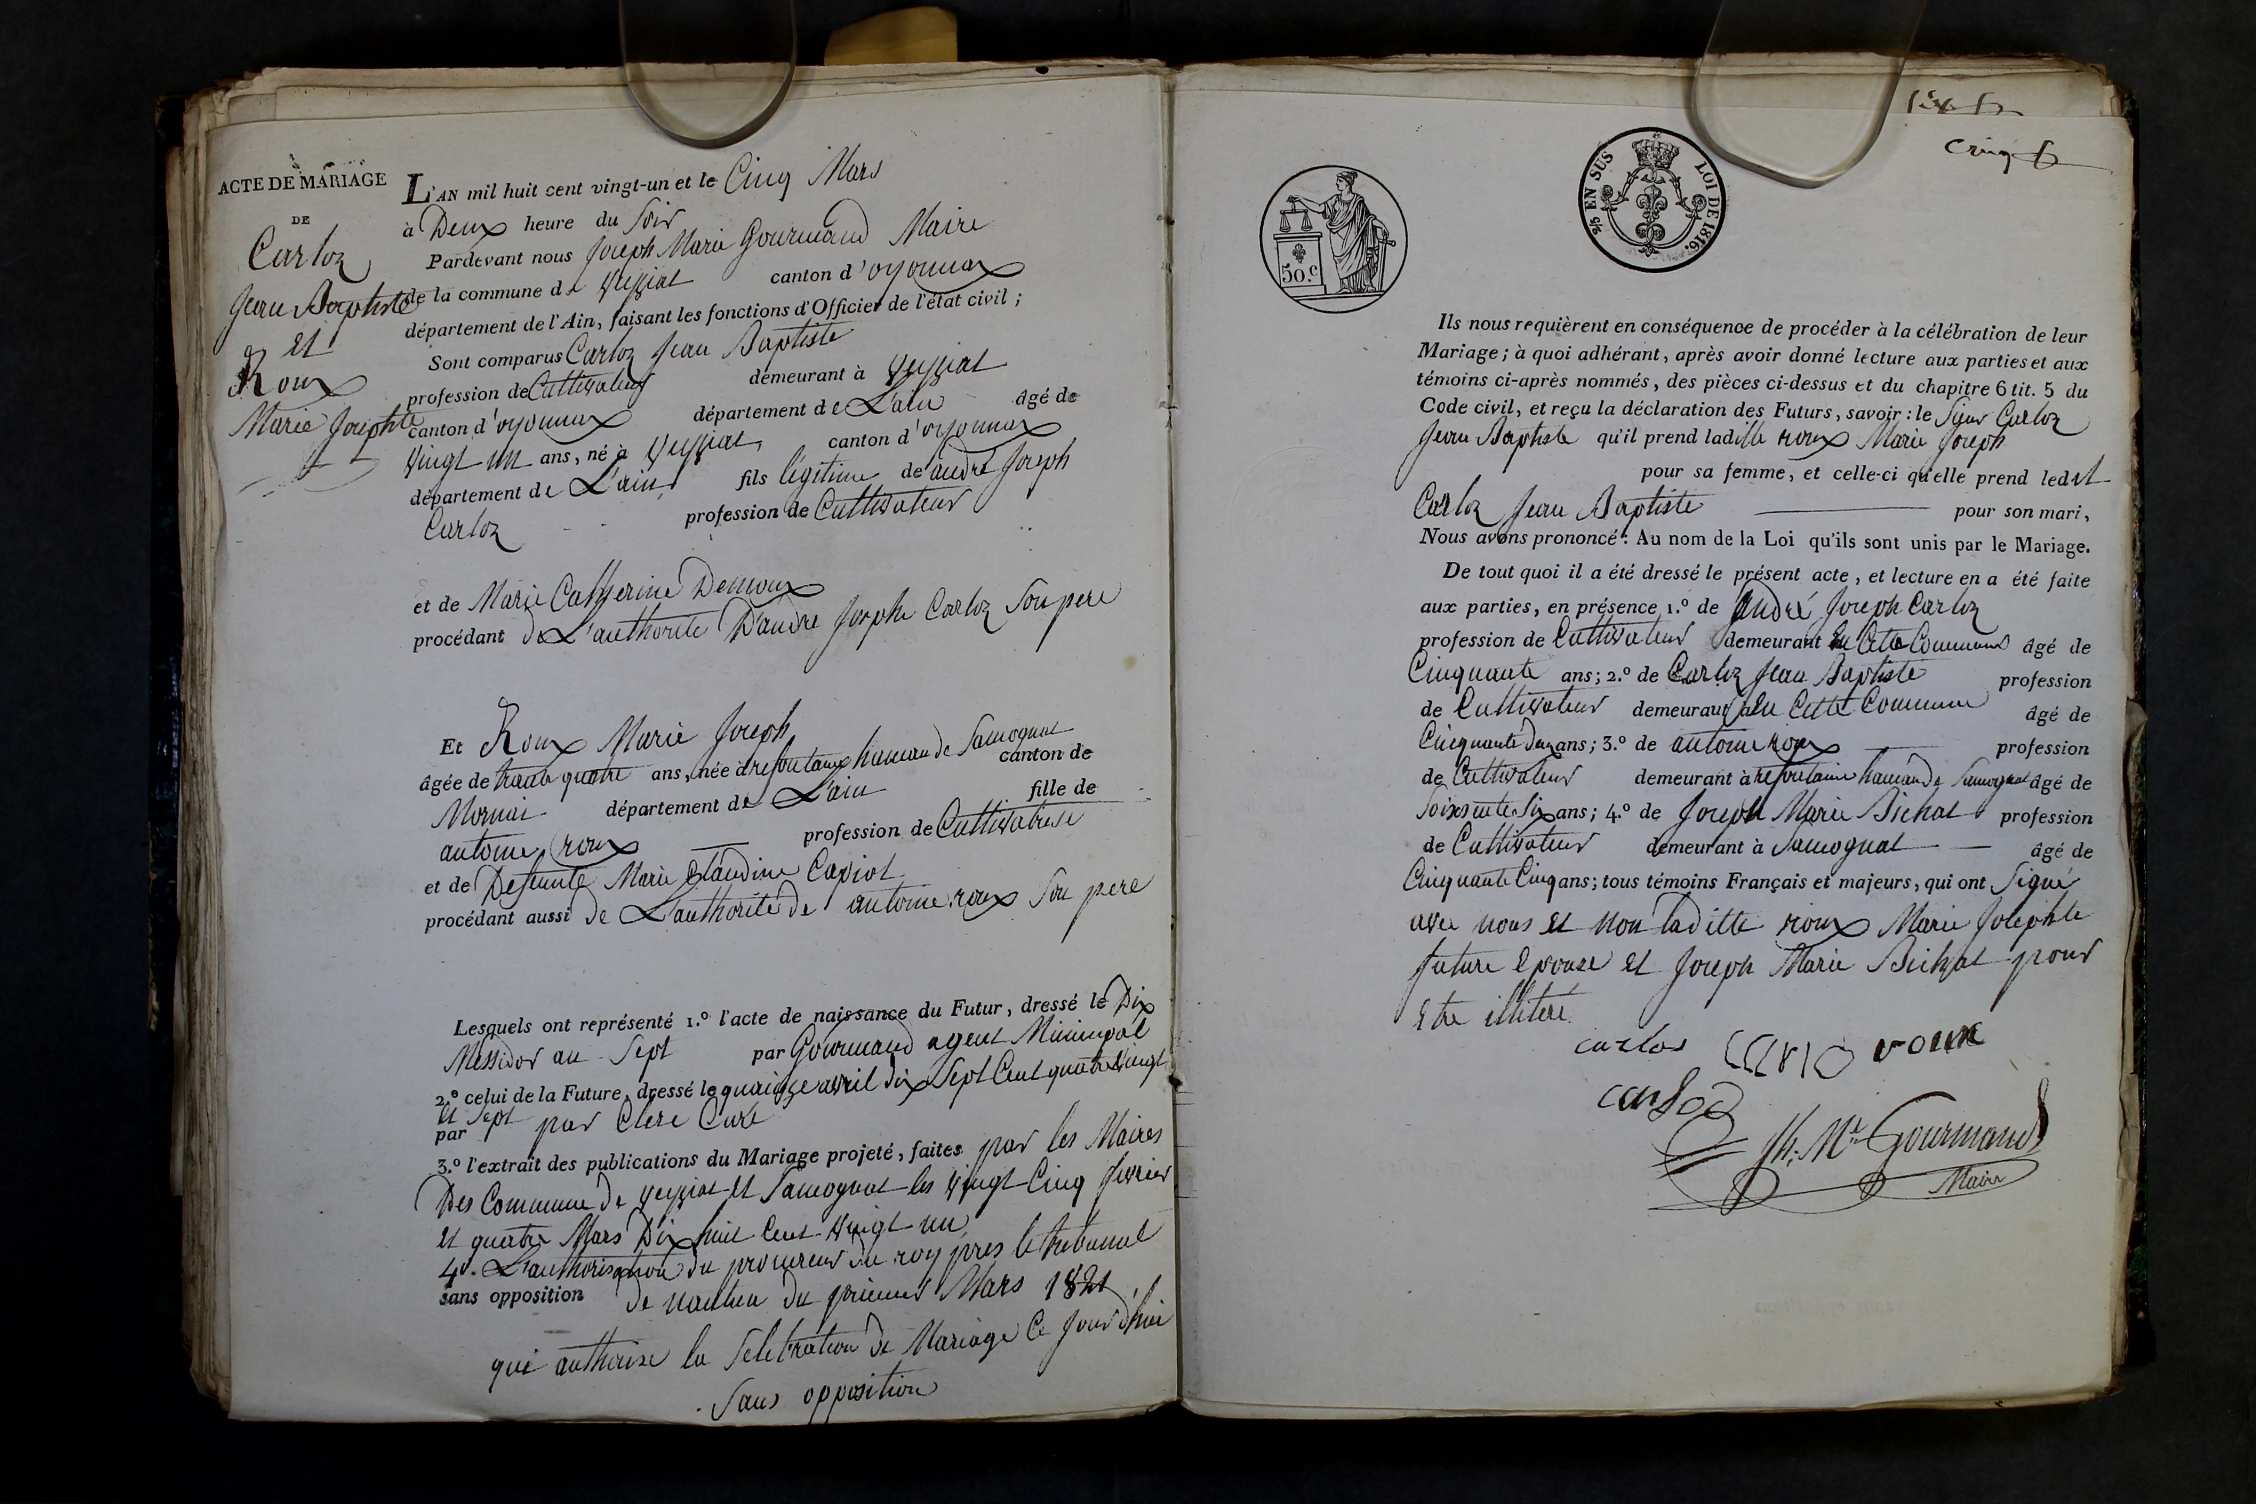 ACTE DE MARIAGE
DE
Carloz
Jean Baptiste
et
Roux
Marie Josephte
L'AN mil huit cent vingt-un et le Cinq Mars
à Deux heure du Soir
Pardevant nous Joseph Marie Gourmand Maire
de la commune de Veyziat canton d'oyonnax
département de l'Ain, faisant les fonctions d'Officier de l'état civil ;
Sont comparus Carloz Jean Baptiste
profession de Cultivateur demeurant à Veyziat
canton d'oyonnax département de L'ain âgé de
Vingt un ans, né à Veyziat canton d'oyonnax
département de L'ain fils légitime de andré Joseph
Carloz profession de Cultivateur
et de Marie Catherine Demoux
procédant de L'authorité D'andré Joseph Carloz Son pere
Et Roux Marie Joseph
âgée de trante quatre ans, née à resfontaine hameau de Samognat canton de
Mornai département de L'ain fille de
antoine roux profession de Cultivatrise
et de Defeunte Marie Claudine Capiot
procédant aussi de L'authorité de antoine roux Son pere
Lesquels ont représenté 1.º l'acte de naissance du Futur, dressé le Dix
Messidor an Sept par Gourmand agent Municipal
2.º celui de la Future, dressé le quainze avril dix Sept Cent quatre Vingt
et Sept
par par Clerc Curé
3.º l'extrait des publications du Mariage projeté, faites par les Maires
Des Commune de Veyziat et Samognat les Vingt Cinq fevrier
et quatre Mars Dix huit Cent Vingt un
4º. L'authorisation du procureur du roy près le tribunal
sans opposition de nantua du premier Mars 1821
qui authorise la Selebration de Mariage Ce Jour d'hui
Sans opposition
Cinq f
50.c
% EN SUS LOI DE 1816.
Ils nous requièrent en conséquence de procéder à la célébration de leur
Mariage ; à quoi adhérant, après avoir donné lecture aux parties et aux
témoins ci-après nommés, des pièces ci-dessus et du chapitre 6 tit. 5 du
Code civil, et reçu la déclaration des Futurs, savoir : le Sieur Carloz
Jean Baptiste qu'il prend laditte roux Marie Joseph
pour sa femme, et celle-ci qu'elle prend ledit
Carloz Jean Baptiste pour son mari,
Nous avons prononcé : Au nom de la Loi qu'ils sont unis par le Mariage.
De tout quoi il a été dressé le présent acte, et lecture en a été faite
aux parties, en présence 1.º de André Joseph Carloz
profession de Cultivateur demeurant en Cette Commune âgé de
Cinquante ans ; 2.º de Carloz Jean Baptiste profession
de Cultivateur demeurant en Cette Commune âgé de
Cinquante Deux ans ; 3.º de antoine roux profession
de Cultivateur demeurant à resfontaine hameau de Samognat âgé de
Soixsente Six ans ; 4.º de Joseph Marie Bichat profession
de Cultivateur demeurant à Samognat âgé de
Cinquante Cinq ans ; tous témoins Français et majeurs, qui ont Signé
avec nous et non laditte roux Marie Josephte
future Epouse et Joseph Marie Bichat pour
Etre illiteré
carlos roux
carloz
Jh. Mie Gourmand
Maire